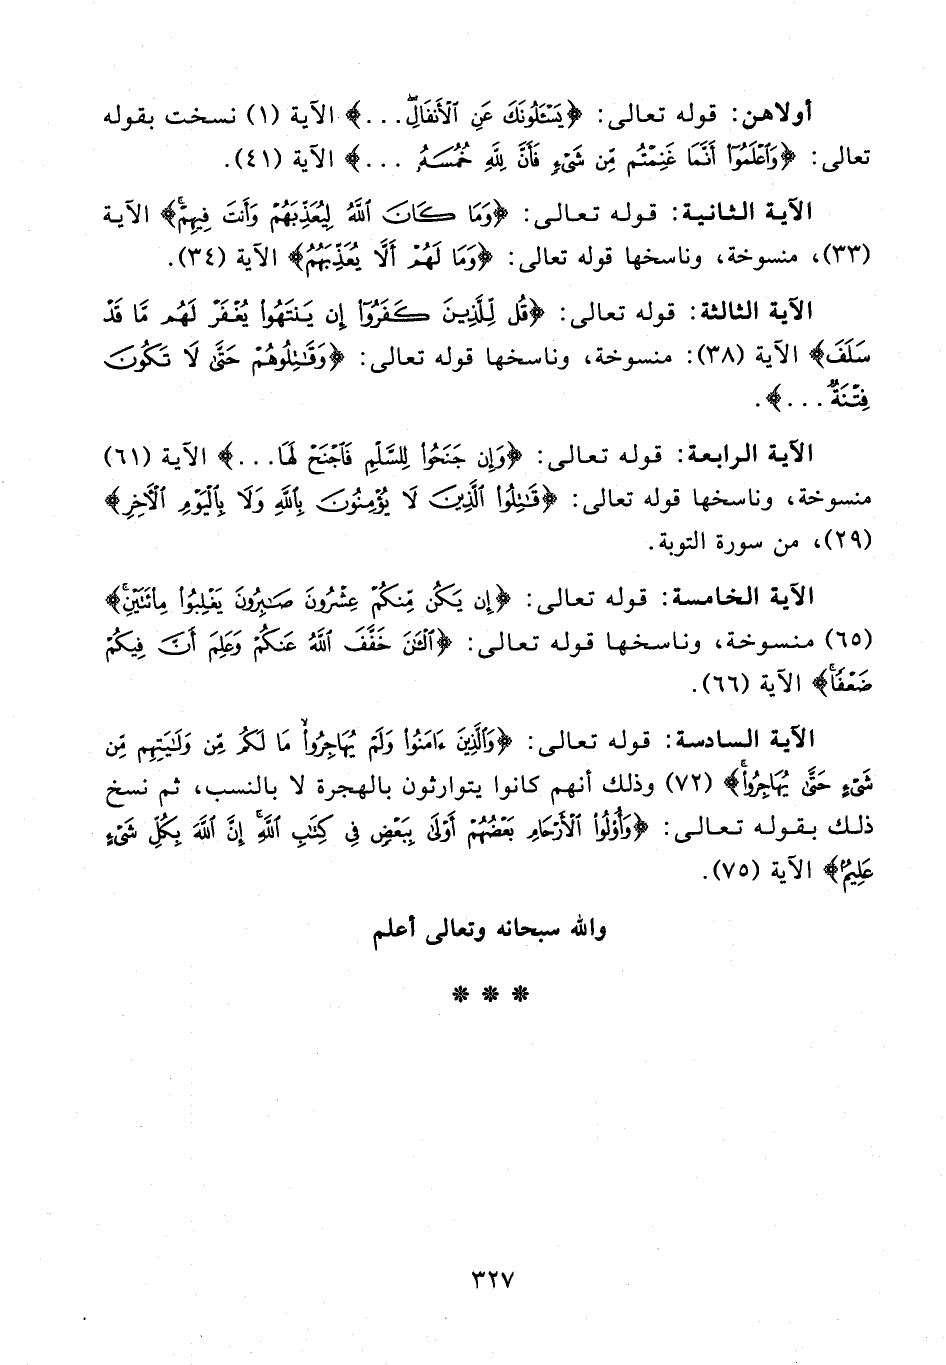 أولاهن: قوله تعالى: ﴿يَسْـَٔلُونَكَ عَنِ ٱلْأَنفَالِۖ...﴾ الآية (١) نسخت بقوله
تعالى: ﴿وَٱعْلَمُوٓا۟ أَنَّمَا غَنِمْتُم مِّن شَىْءٍ فَأَنَّ لِلَّهِ خُمُسَهُۥ ...﴾ الآية (٤١).
الآية الثانية: قوله تعالى: ﴿وَمَا كَانَ ٱللَّهُ لِيُعَذِّبَهُمْ وَأَنتَ فِيهِمْۚ﴾ الآية
(٣٣)، منسوخة، وناسخها قوله تعالى: ﴿وَمَا لَهُمْ أَلَّا يُعَذِّبَهُمُ﴾ الآية (٣٤).
الآية الثالثة: قوله تعالى: ﴿قُل لِّلَّذِينَ كَفَرُوٓا۟ إِن يَنتَهُوا۟ يُغْفَرْ لَهُم مَّا قَدْ
سَلَفَ﴾ الآية (٣٨): منسوخة، وناسخها قوله تعالى: ﴿وَقَـٰتِلُوهُمْ حَتَّىٰ لَا تَكُونَ
فِتْنَةٌ ...﴾.
الآية الرابعة: قوله تعالى: ﴿وَإِن جَنَحُوا۟ لِلسَّلْمِ فَٱجْنَحْ لَهَا...﴾ الآية (٦١)
منسوخة، وناسخها قوله تعالى: ﴿قَـٰتِلُوا۟ ٱلَّذِينَ لَا يُؤْمِنُونَ بِٱللَّهِ وَلَا بِٱلْيَوْمِ ٱلْـَٔاخِرِ﴾
(٢٩)، من سورة التوبة.
الآية الخامسة: قوله تعالى: ﴿إِن يَكُن مِّنكُمْ عِشْرُونَ صَـٰبِرُونَ يَغْلِبُوا۟ مِا۟ئَتَيْنِۚ﴾
(٦٥) منسوخة، وناسخها قوله تعالى: ﴿ٱلْـَٔـٰنَ خَفَّفَ ٱللَّهُ عَنكُمْ وَعَلِمَ أَنَّ فِيكُمْ
ضَعْفًاۚ﴾ الآية (٦٦).
الآية السادسة: قوله تعالى: ﴿وَٱلَّذِينَ ءَامَنُوا۟ وَلَمْ يُهَاجِرُوا۟ مَا لَكُم مِّن وَلَـٰيَتِهِم مِّن
شَىْءٍ حَتَّىٰ يُهَاجِرُوا۟ۚ﴾ (٧٢) وذلك أنهم كانوا يتوارثون بالهجرة لا بالنسب، ثم نسخ
ذلك بقوله تعالى: ﴿وَأُو۟لُوا۟ ٱلْأَرْحَامِ بَعْضُهُمْ أَوْلَىٰ بِبَعْضٍ فِى كِتَـٰبِ ٱللَّهِۚ إِنَّ ٱللَّهَ بِكُلِّ شَىْءٍ
عَلِيمٌۢ﴾ الآية (٧٥).
والله سبحانه وتعالى أعلم
* * *
٣٢٧